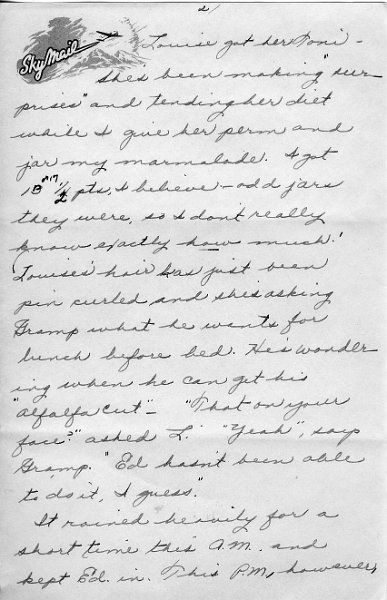 2
Sky Mail
Louise got her Toni -
She's been making "sur
prises" and tending her diet
while I give her perm and
jar my marmalade. I got
18 or 17 1/2 pts, I believe - odd jars
they were, so I don't really
know exactly how much!
Louise's hair has just been
pin curled and she's asking
Gramp what he wants for
lunch before bed. He's wonder
ing when he can get his
"alfalfa cut" - "That on your
face?" asked L. "Yeah", says
Gramp. "Ed hasn't been able
to do it, I guess."
It rained heavily for a
short time this A.M. and
kept Ed. in. This P.M., however,